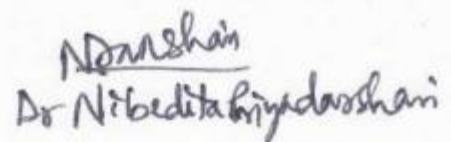 NDarshani
Dr Nibedita Priyadarshani